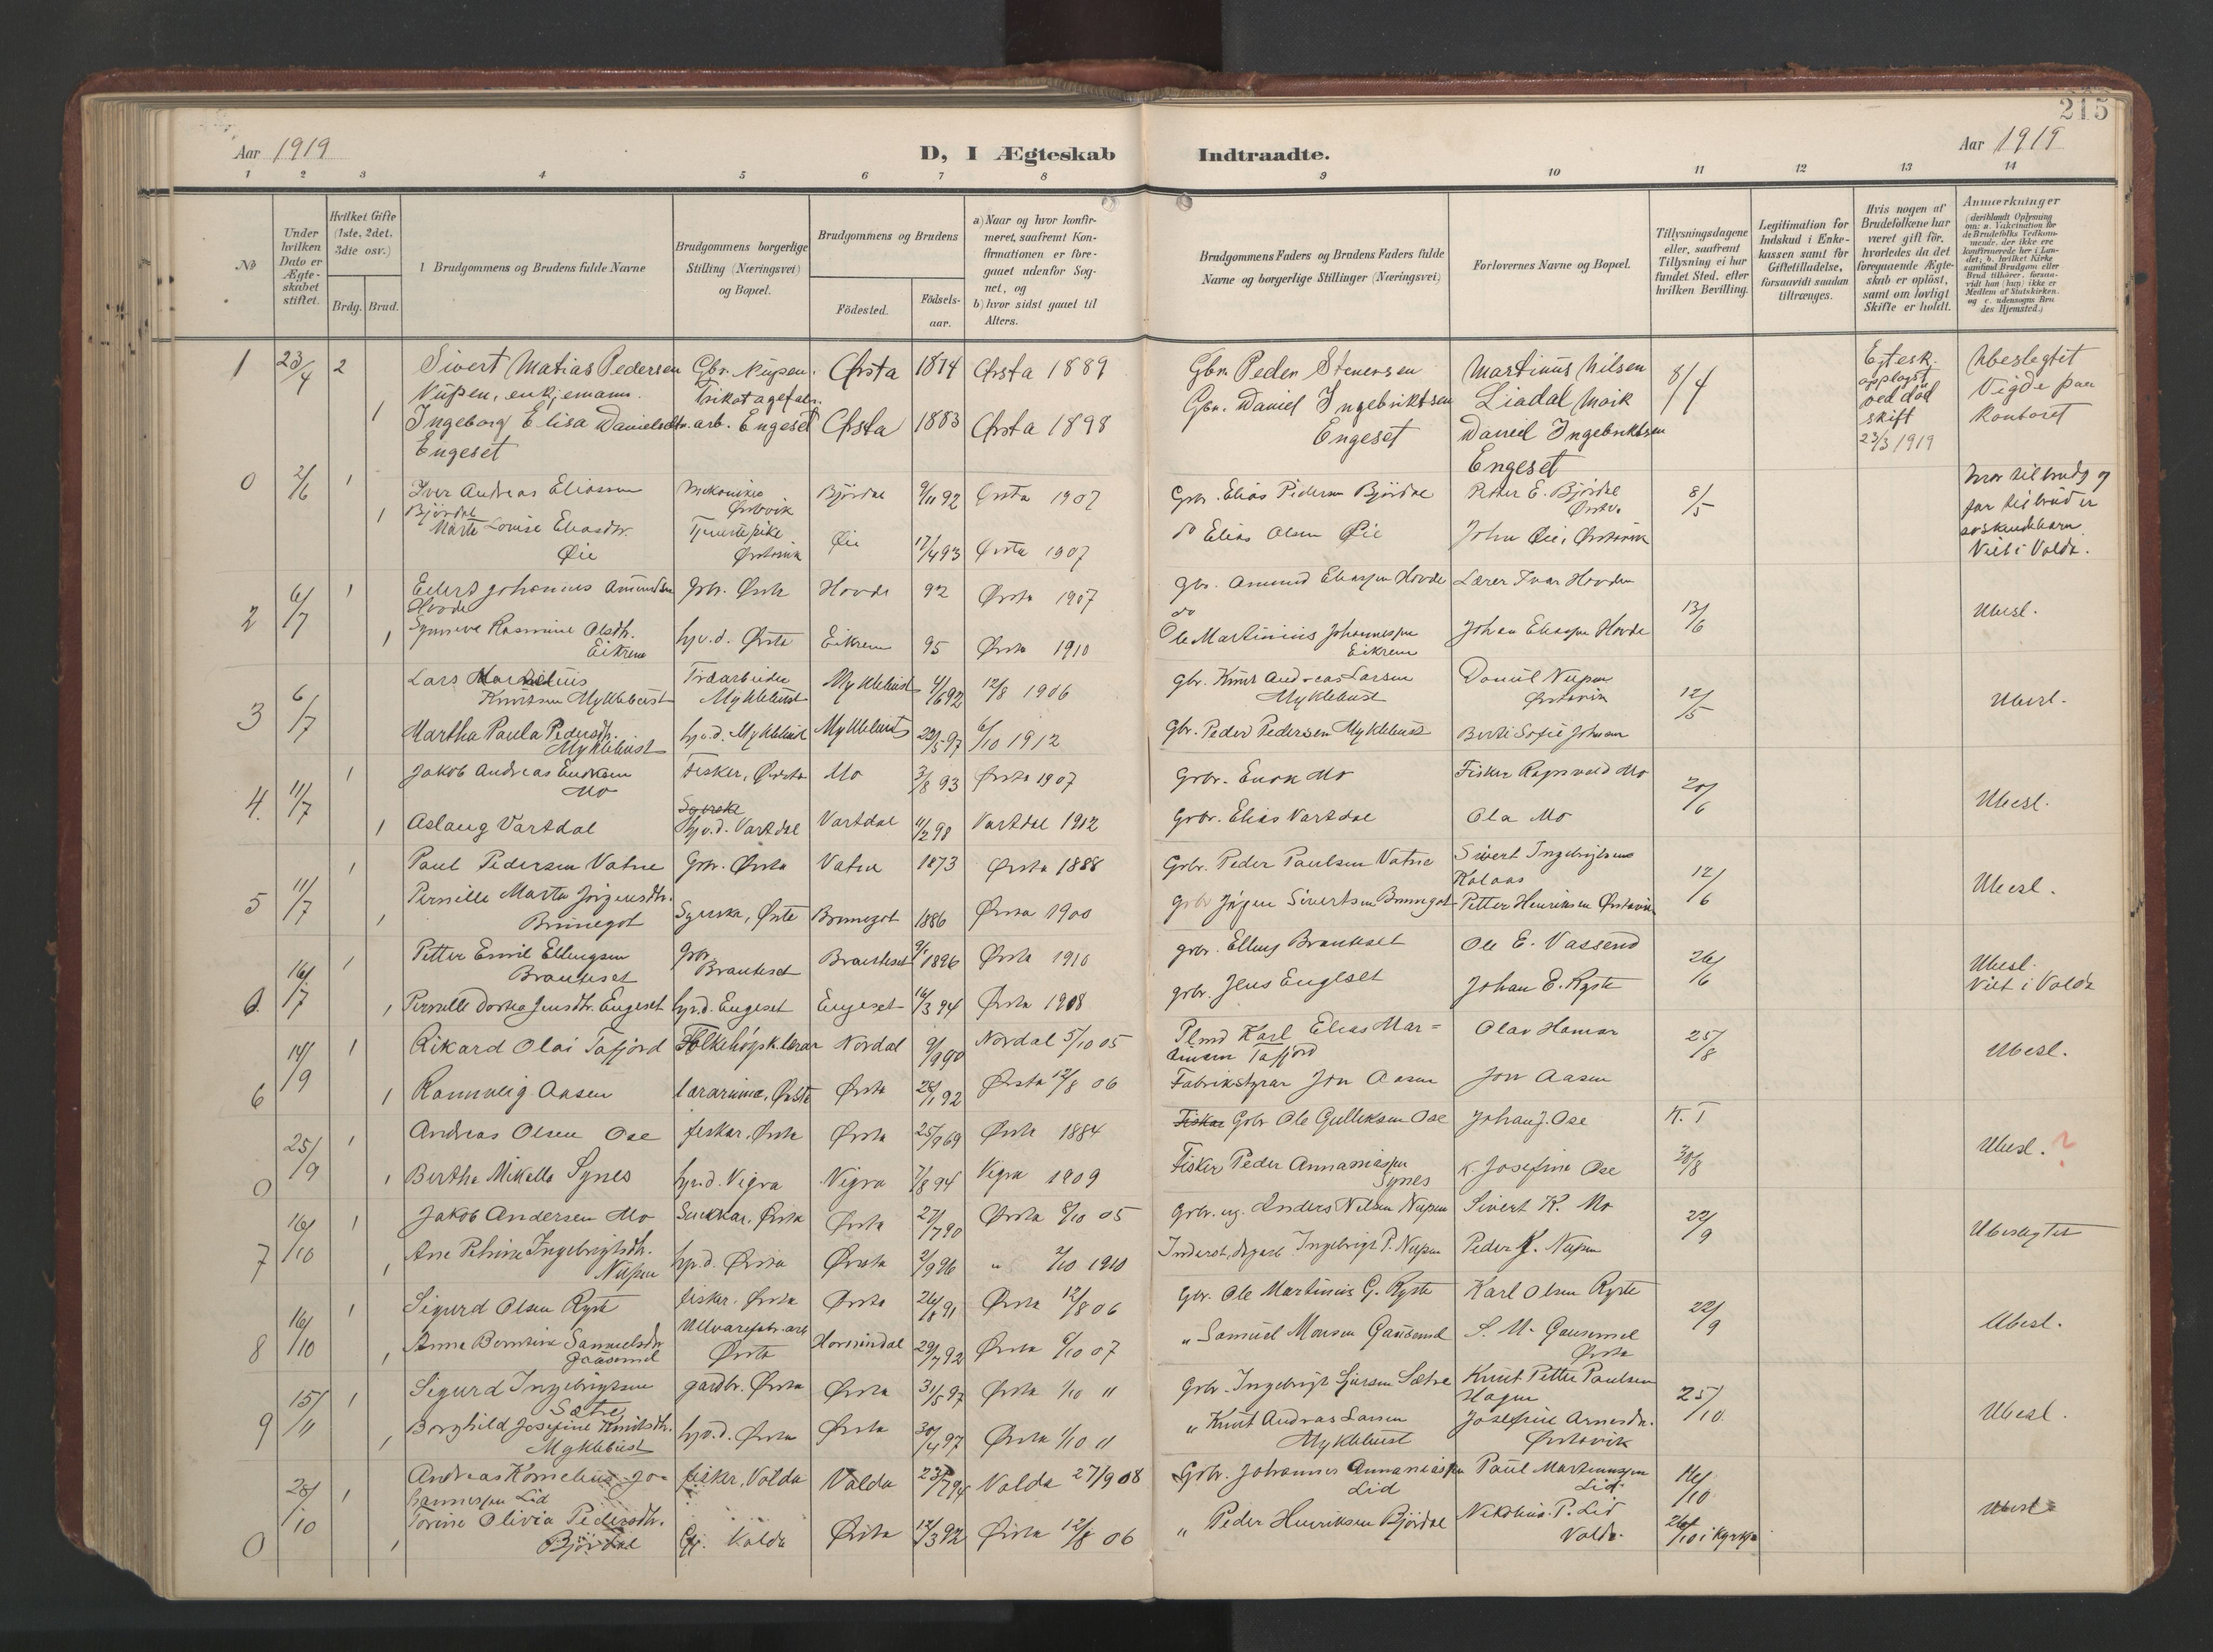 215
Aar 1919
D, I Ægteskab Indtraadte.
Aar 1919
1 2 3 4 5 6 7 8 9 10 11 12 13 14
No
Under hvilken Dato er Ægte-skabet stiftet.
Hvilket Gifte (1ste, 2det. 3die osv.)
Brdg. Brud.
Brudgommens og Brudens fulde Navne
Brudgommens borgerlige Stilling (Næringsvei) og Bopæl.
Brudgommens og Brudens
Födested.
Födsels-aar.
a) Naar og hvor konfir-meret, saafremt Kon-firmationen er fore-gaaet udenfor Sog-net, og
b) hvor sidst gaaet til Alters.
Brudgommens Faders og Brudens Faders fulde Navne og borgerlige Stillinger (Næringsvei)
Forlovernes Navne og Bopæl.
Tillysningsdagene eller, saafremt Tillysning ei har fundet Sted, efter hvilken Bevilling.
Legitimation for Indskud i Enke-kassen samt for Giftetilladelse, forsaavidt saadan tiltrænges.
Hvis nogen af Brudefolkene har været gift för, hvorledes da det foregaaende Ægte-skab er oplöst, samt om lovligt Skifte er holdt.
Anmærkninger
(deriblandt Oplysning om: a. Vakcination for de Brudefolks Vedkom-mende, der ikke ere konfirmerede her i Lan-det; b. hvilket Kirke-samfund Brudgom eller Brud tilhörer, forsaa-vidt han (hun) ikke er Medlem af Statskirken. og c. udensogns Bru-des Hjemsted.)
1 23/4 2 Sivert Matias Pedersen Gbr. Nupen. Ørsta 1874 Ørsta 1889 Gbr. Peder Stenersen Martinus Nilsen 8/4 Egtesk. Ubeslegtet
Nupen, enkjemann. Trikotagefabr. Liadal oppløyst ved død Vigde paa
1 Ingeborg Elisa Danielsdtr. arb. Engeset Ørsta 1883 Ørsta 1898 Gbr. Daniel Ingebriktsen Daniel Ingebriktsen skift Kontoret
Engeset Engeset Engeset 23/3 1919
0 2/6 1 Iver Andreas Eliassen Mekanikar Bjørdal 9/11 92 Ørsta 1907 Gbr. Elias Pedersen Bjørdal Petter E. Bjørdal 8/5 mor til brudg og
Bjørdal Ørstavik Ørsta far til brud er
1 Marta Louise Eliasdtr. Tjenestepike Øie 17/4 93 Ørsta 1907 do Elias Olsen Øie John Øie, Ørstavik søskendebarn
Øie Ørstavik Viet i Volda.
2 6/7 1 Eilert Johannes Amundsen Gbr. Ørsta Hovde 92 Ørsta 1907 Gbr. Amund Eliassen Hovde Lærer Ivar Hovden 13/6 Ubesl.
Hovde do
1 Synneve Rasmine Olsdtr. hjv.d. Ørsta Eikrem 95 Ørsta 1910 Ole Martinius Johannessen Johan Eliassen Hovde
Eikrem Eikrem
3 6/7 Lars Træarbeider Myklebust 4/6 92 12/8 1906 Gbr. Knut Andreas Larsen Daniel Nupen 12/5 Ubesl.
Knutsen Myklebust Myklebust Myklebust Ørstavik
Martha Paula Pedersdtr. hjv.d. Myklebust Myklebust 22/5 97 6/10 1912 Gbr. Peder Pedersen Myklebust
Myklebust
4. 11/7 1 Jakob Andreas Enoksen Fisker, Ørsta Mo 3/8 93 Ørsta 1907 Grbr. Enok Mo Fisker Ragnvald Mo 20/6 Ubesl.
Mo
1 Aslaug Vartdal hjv.d. Vartdal Vartdal 11/2 98 Vartdal 1912 Grbr. Elias Vartdal Ola Mo
5 11/7 1 Paul Pedersen Vatne Grbr. Ørsta Vatne 1873 Ørsta 1888 Grbr. Peder Paulsen Vatne Sivert Ingebrigtsen 12/6 Ubesl.
Kolaas
1 Pernille Marta Jørgensdtr. Syerska, Ørsta Brunegot 1886 Ørsta 1900 Grbr Jørgen Sivertsen Brunegot Petter Henriksen Ørstavik
Brunegot
6. 16/7 1 Petter Emil Ellingsen Gbr. Brauteset 9/1 1896 Ørsta 1910 grbr. Elling Brauteset Ole E. Vassend 26/6 Ubesl.
Brauteset Brauteset Viet i Volda
1 Pernille Dorthea Jensdtr. Engeset hjv.d. Engeset Engeset 16/3 94 Ørsta 1908 grbr. Jens Engeset Johan E. Ryste
6 14/9 1 Rikard Olai Tafjord Folkehøgsk.lærar Nordal 9/9 90 Nordal 5/10 05 Plmd Karl Elias Mar= Olav Hamar 25/8 Ubesl.
tinsen Tafjord
1 Rannveig Aasen lærarinne, Ørsta Ørsta 28/1 92 Ørsta 12/8 06 Fabrikstyrar Jon Aasen Jon Aasen
0 25/9 1 Andreas Olsen Ose fiskar, Ørsta Ørsta 25/9 69 Ørsta 1884 Fiskar Grbr Ole Gulliksen Ose Johan J. Ose K. T Ubesl. ?
1 Bertha Mikalla Synes hjv.d. Vigra Vigra 7/8 94 Vigra 1909 Fisker Peder Annaniassen K. Josefine Ose 30/8
Synes
7 16/10 1 Jakob Andersen Mo Snekkar, Ørsta Ørsta 27/7 90 Ørsta 8/10 05 Grbr. og Anders Nilsen Nupen Sivert K. Mo 22/9 Ubeslegtet
1 Ane Petrine Ingebrigtsdtr. hjv.d. Ørsta Ørsta 2/9 96 " 2/10 1910 Inderst, dagarb Ingebrigt P. Nupen Peder K. Nupen
Nupen
8 16/10 1 Sigurd Olsen Ryste fisker. Ørsta Ørsta 26/8 91 Ørsta 12/8 06 Gbr. Ole Martinus G. Ryste Karl Olsen Ryste 22/9 Ubesl.
1 Anna Berntine Samuelsdtr. Ullvarefabr.arb Hornindal 29/7 92 Ørsta 6/10 07 " Samuel Monsen Gausemel S. M. Gausemel
Gausemel Ørsta Ørsta
9 15/11 1 Sigurd Ingebrigtsen gardbr. Ørsta Ørsta 31/5 97 Ørsta 1/10 11 Grbr. Ingebrigt Sjursen Sætre Knut Petter Paulsen 25/10. Ubesl.
Sætre Hagen
1 Borghild Josefine Knutsdtr. hjv.d. Ørsta Ørsta 30/4 97 Ørsta 1/10 11 " Knut Andreas Larsen Josefine Arnesdtr.
Myklebust Myklebust Ørstavik
0 28/10 1 Andreas Kornelius Jo- fisker, Volda Volda 23/7 94 Volda 27/9 08 Grbr. Johannes Annaniassen Paul Martinussen 14/10. Ubesl.
hannessen Lid Lid Lid
1 Torine Olivia Pedersdtr. Volda Ørsta 12/3 92 Ørsta 12/8 06 " Peder Henriksen Bjørdal Nikolius P. Lid 26/10 i kyrkja
Bjørdal Volda.